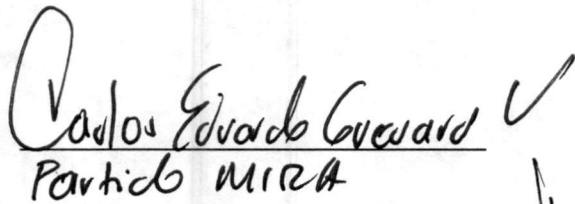 Carlos Eduardo Guevara V
Partido MIRA